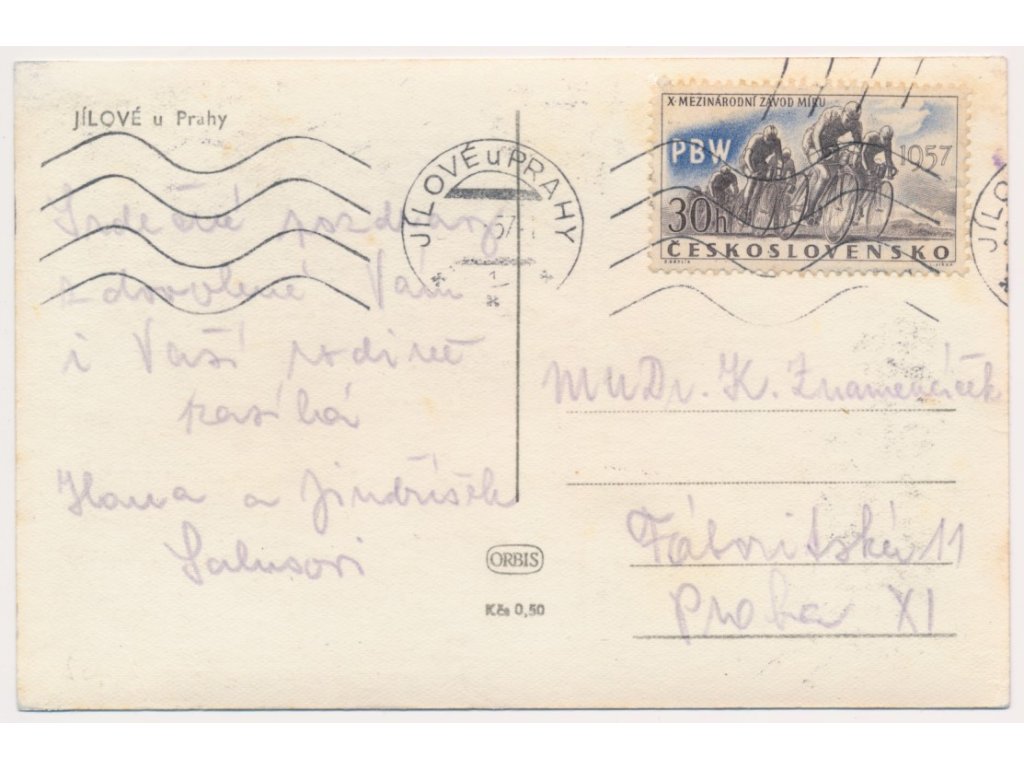 JÍLOVÉ u Prahy
Srdečné pozdravy
z dovolené Vám
i Vaší rodině
zasílá
Hana a Jindříšek
Salusovi
JÍLOVÉ u PRAHY
57
1
X. MEZINÁRODNÍ ZÁVOD MÍRU
PBW 1957
30h
ČESKOSLOVENSKO
JÍL
MUDr. K. Znamenáček
Táboritská 11
Praha XI
ORBIS
Kčs 0,50